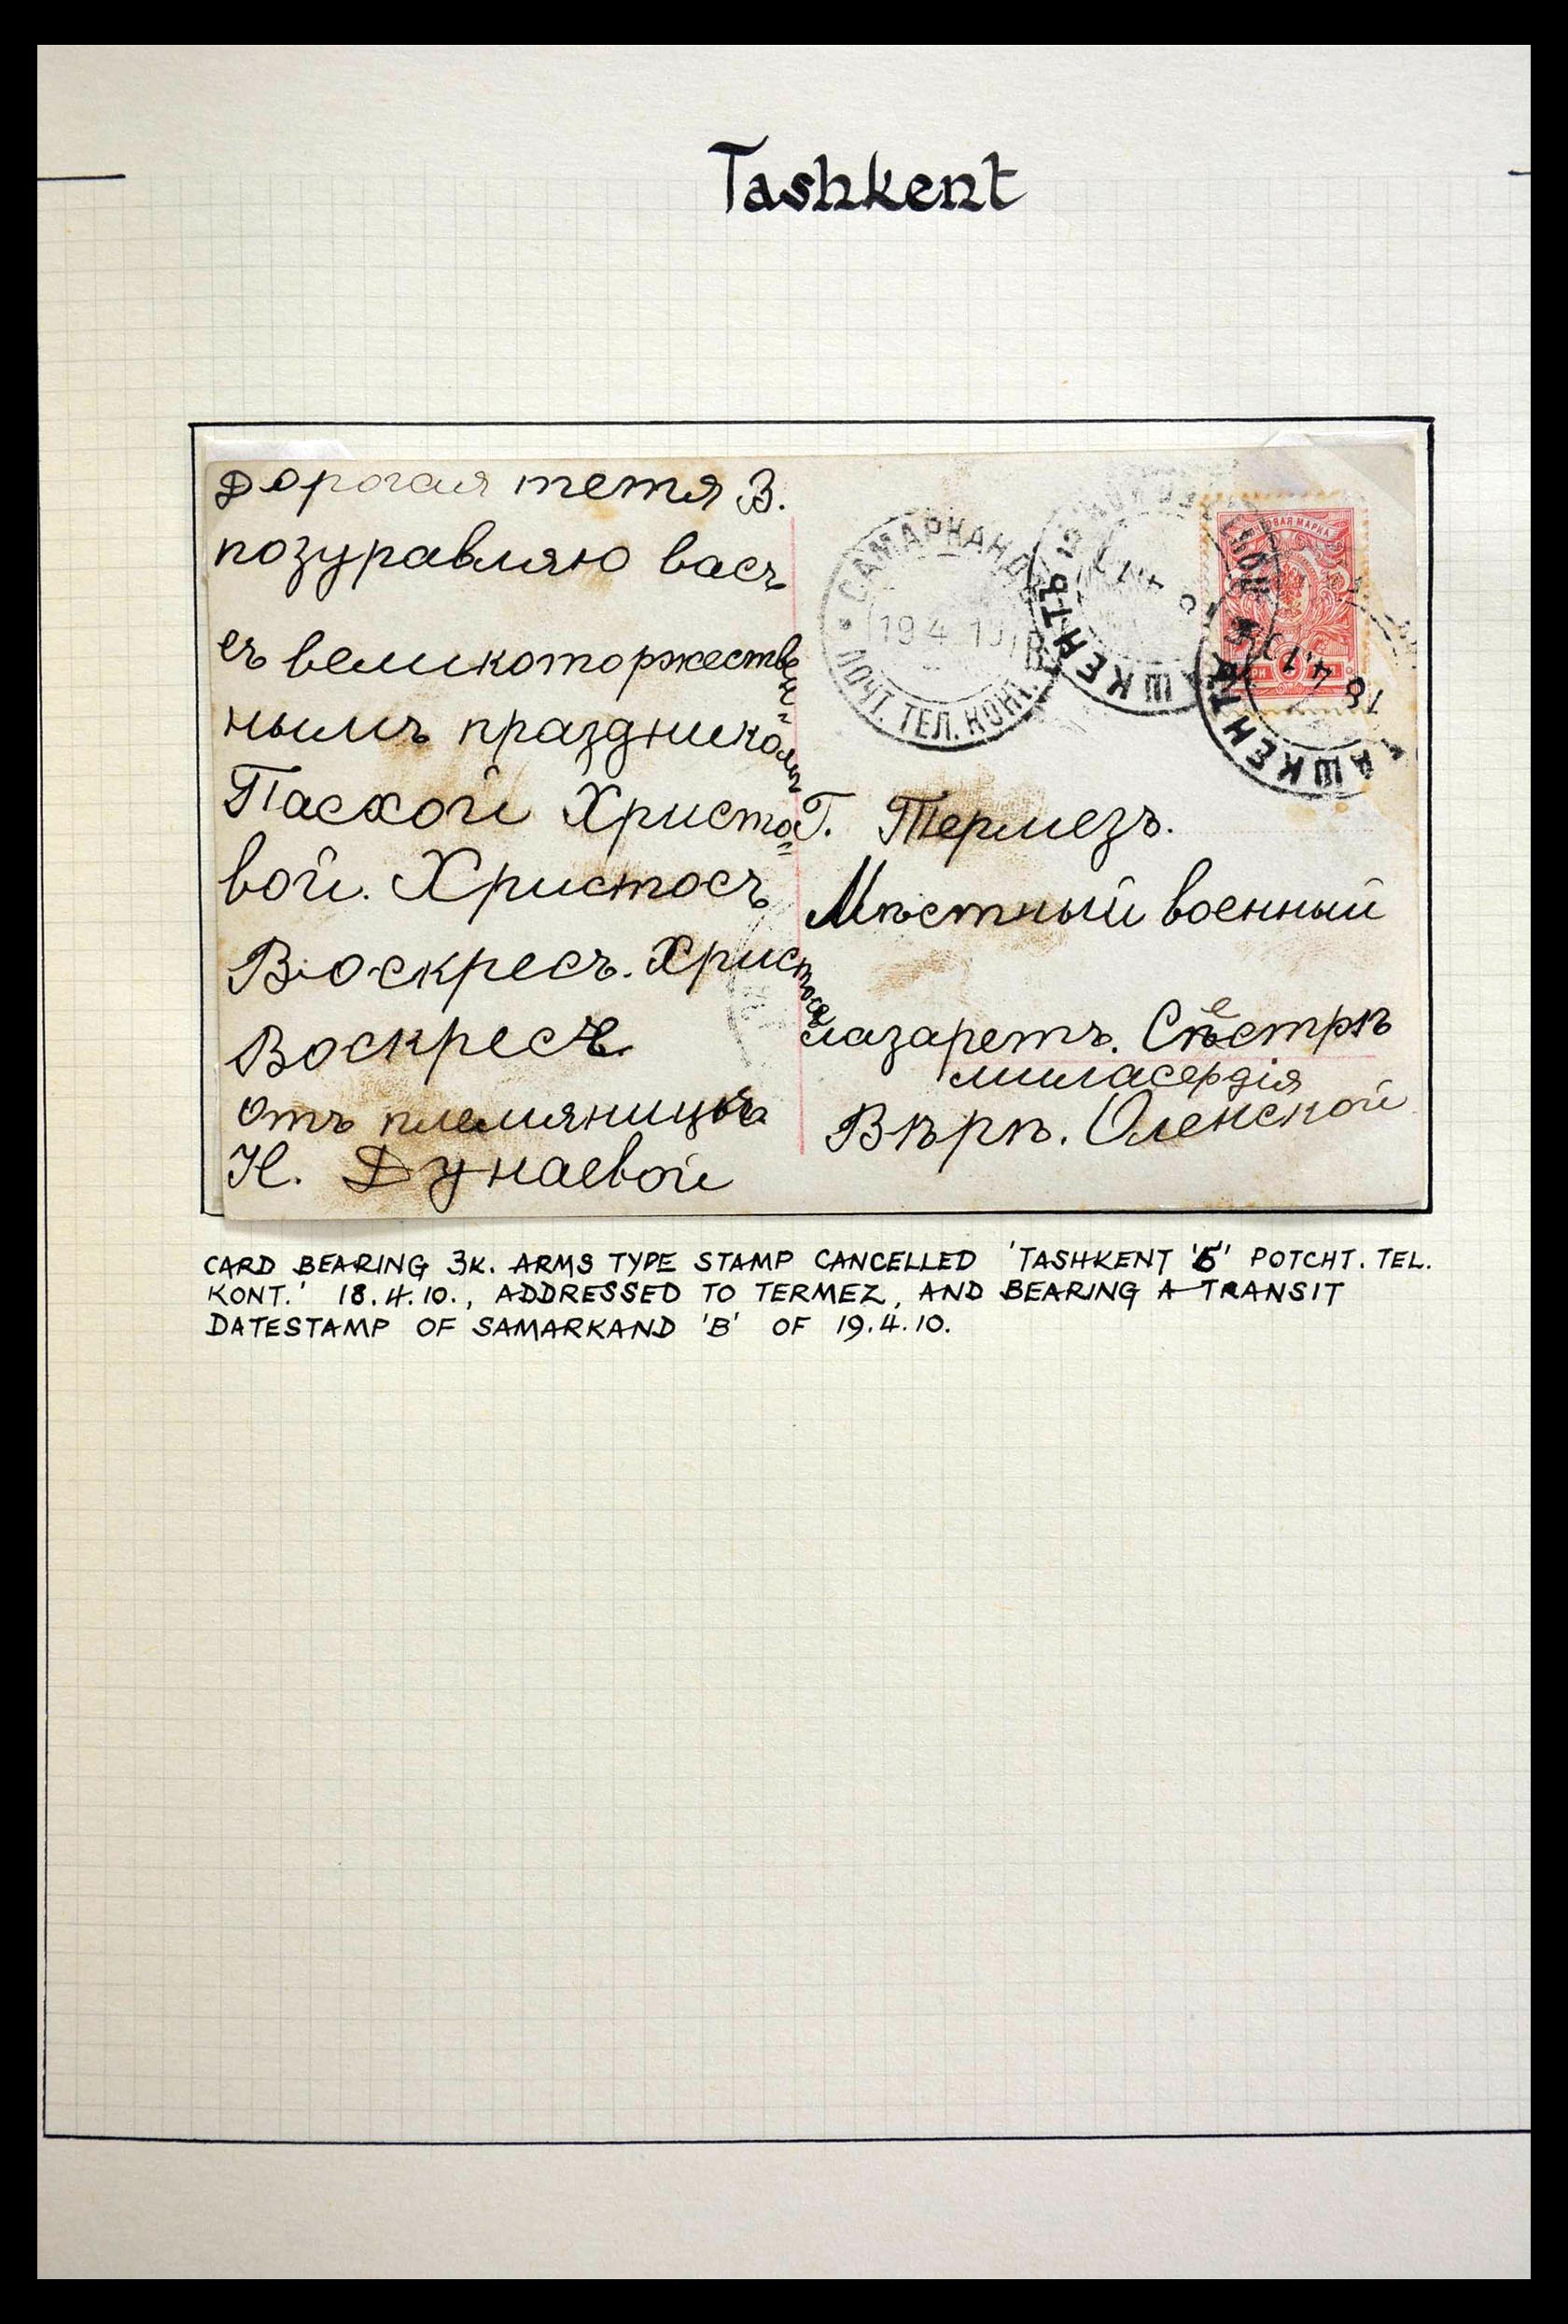 Tashkent
Дорогая тетя В.
позуравляю васъ
съ великоторжествен-
нымъ праздникомъ
Пасхой Христо=
вой. Христосъ
Воскресъ. Христосъ
Воскресъ.
Отъ племяницы
Н. Дунаевой
САМАРКАНДЪ
19 4 10
ПОЧТ. ТЕЛ. КОНТ.
ТАШКЕНТЪ
ТАШКЕНТЪ
18 4.10
МАРКА
Г. Термезъ.
Мѣстный военный
лазаретъ. Сестрѣ
миласердія
Вѣрѣ. Оленской
CARD BEARING 3K. ARMS TYPE STAMP CANCELLED 'TASHKENT 'Б' POTCHT. TEL.
KONT.' 18.4.10., ADDRESSED TO TERMEZ, AND BEARING A TRANSIT
DATESTAMP OF SAMARKAND 'B' OF 19.4.10.